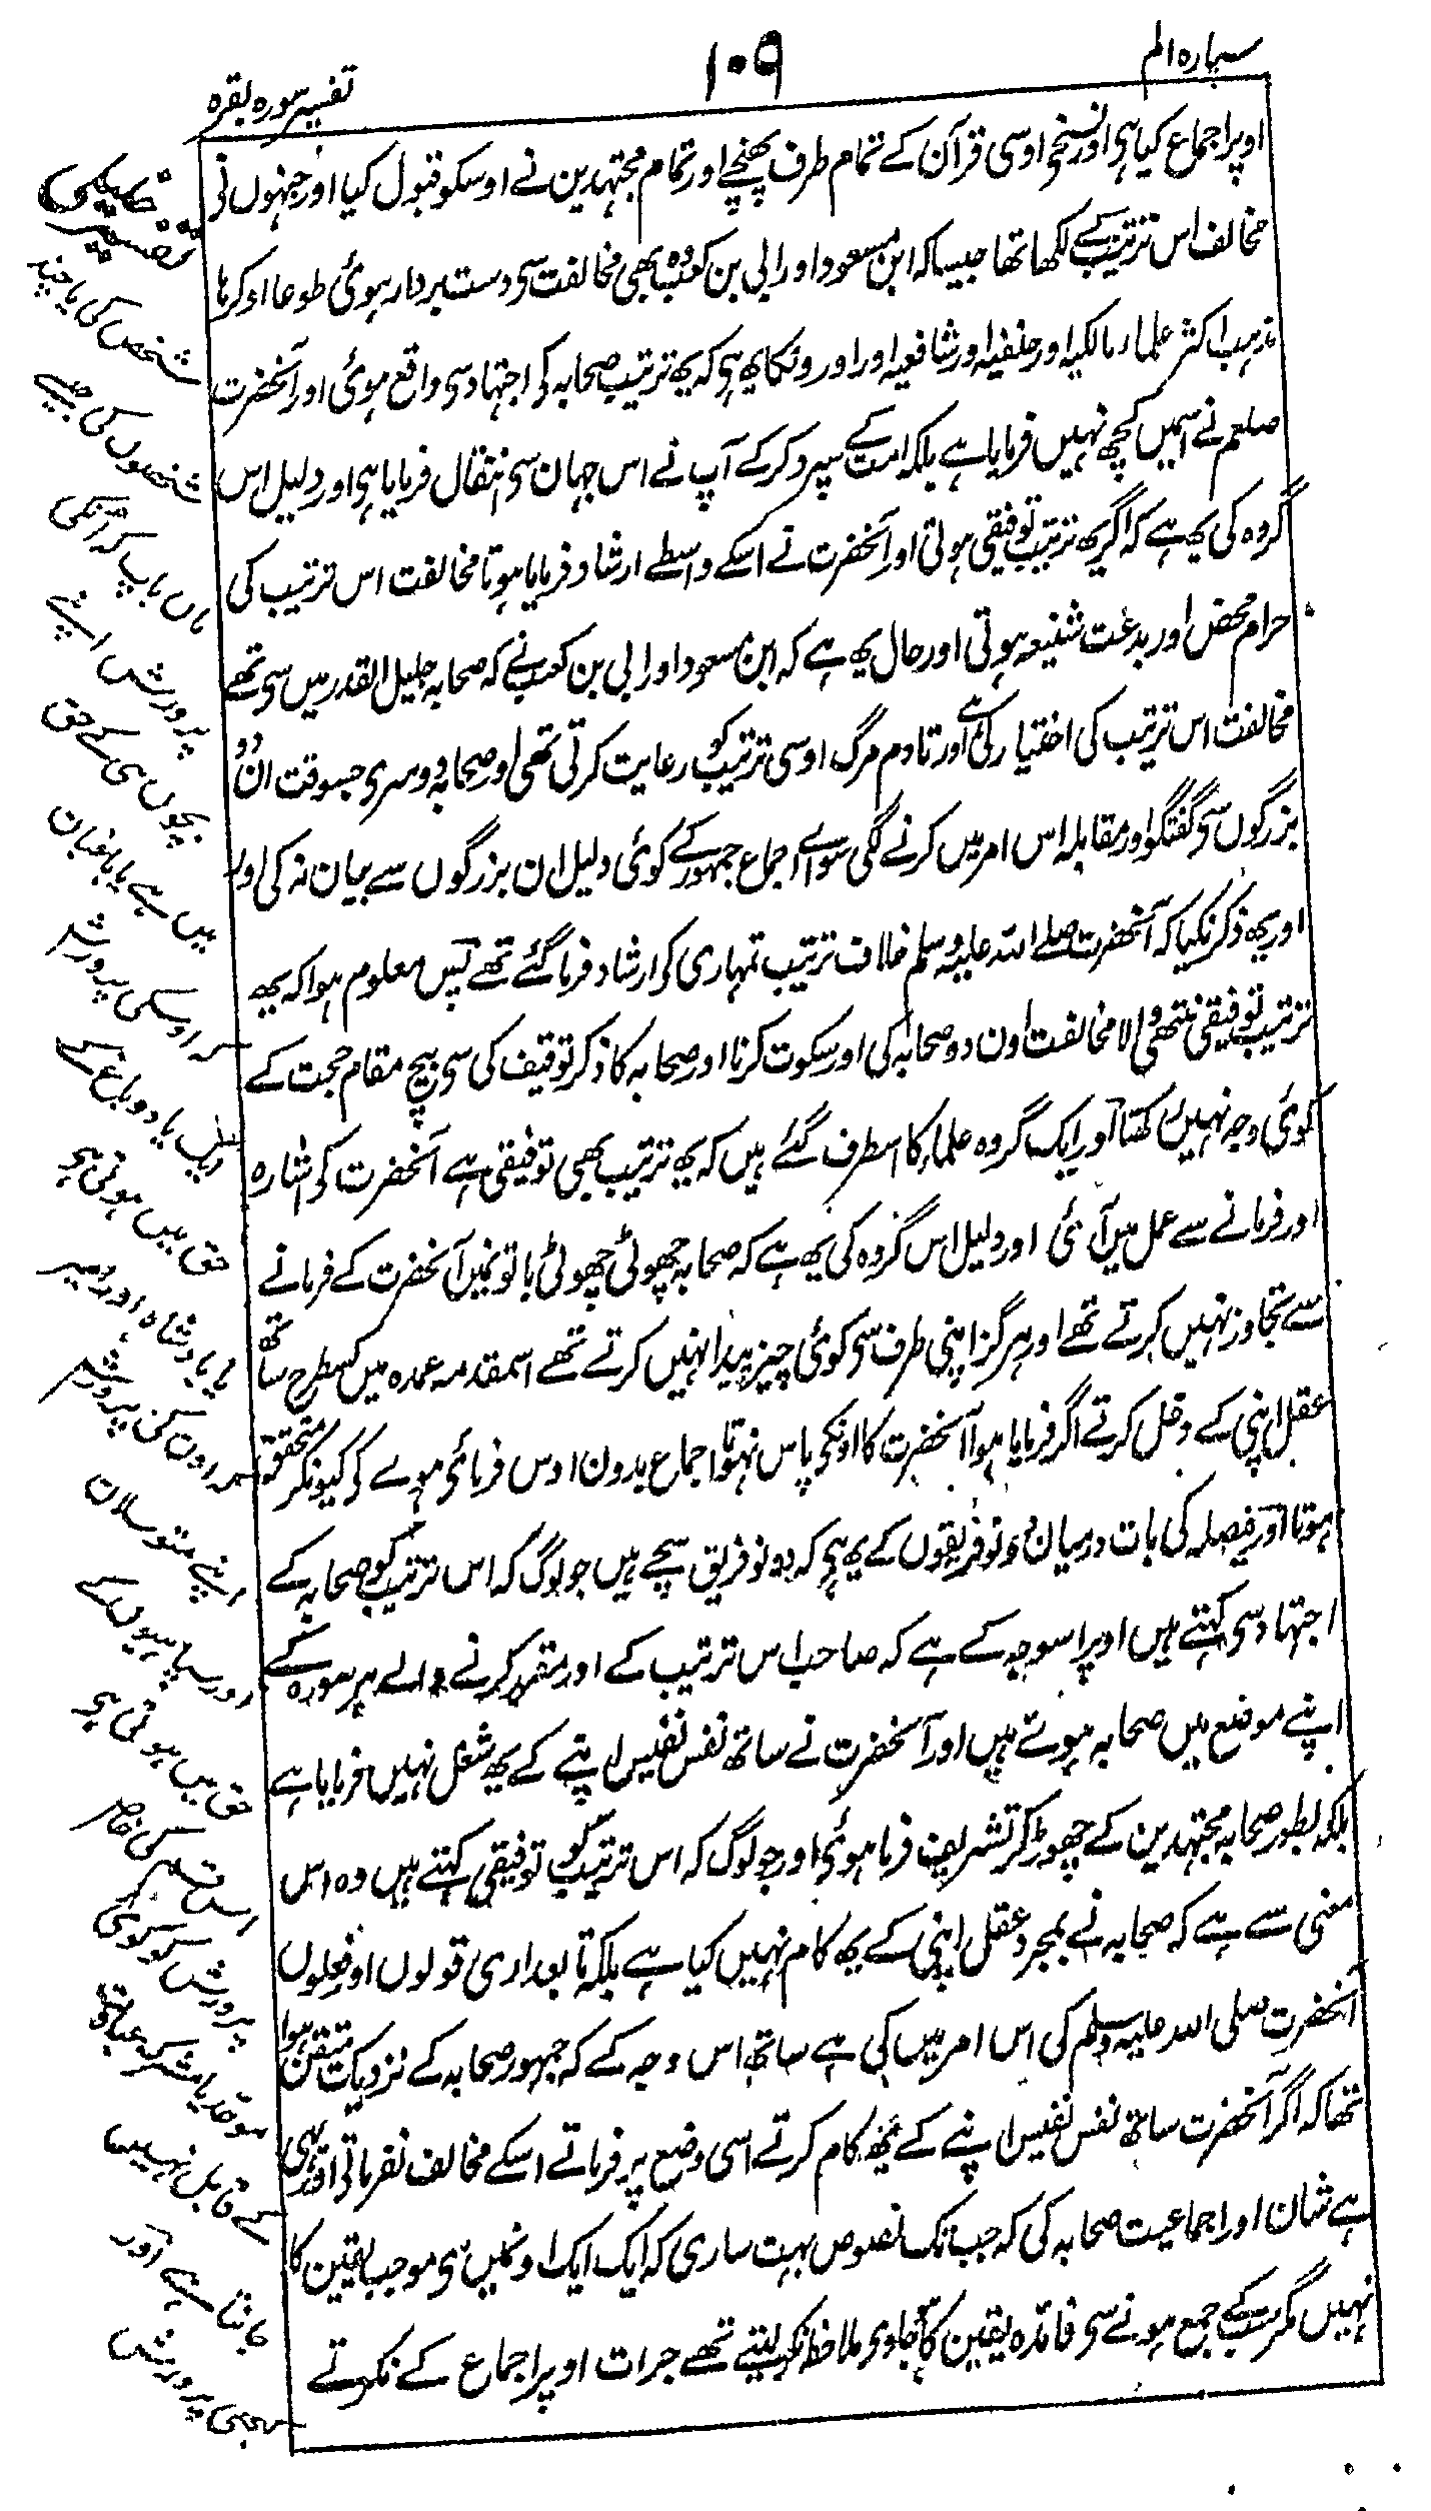 سیپاره الم
١٠٩
تفسیر سوره بقره
اوپر اجماع کیا ہی اور نسخی اوسی قرآن کے تمام طرف پھنچے اور تمام مجتہدین نے اوسکو قبول کیا اور جنہوں نی
مخالف اس ترتیب کے لکھا تھا جیسا کہ ابن مسعود اور ابی بن کعب وہ بھی مخالفت سی دست بردار ہوئی طوعا او کرہا
مذہب اکثر علماء مالکیہ اور حنفیہ اور شافعیہ اور اورونکا یہ ہی کہ یہ ترتیب صحابہ کی اجتہاد سی واقع ہوئی اور آنحضرت
صلعم نے اسمیں کچھ نہیں فرمایا ہے بلکہ امت کے سپرد کرکے آپ نے اس جہان سی انتقال فرمایا ہی اور دلیل اس
گروہ کی یہ ہے کہ اگر یہ ترتیب توقیفی ہوتی اور آنحضرت نے اسکے واسطے ارشاد فرمایا ہوتا مخالفت اس ترتیب کی
حرام محض اور بدعت شنیعہ ہوتی اور حال یہ ہے کہ ابن مسعود اور ابی بن کعب نے کہ صحابہ جلیل القدر میں سی تھے
مخالفت اس ترتیب کی اختیار کی ہے اور تا دم مرگ اوسی ترتیب کو رعایت کرتی تھی اور صحابہ دوسری جسوقت ان دو
بزرگوں سی گفتگو اور مقابلہ اس امر میں کرنے لگی سوائے اجماع جمہور کے کوئی دلیل ان بزرگوں سے بیان نہ کی اور
اور یہ ذکر نکیا کہ آنحضرت صلے اللہ علیہ وسلم خلاف ترتیب تمہاری کو ارشاد فرما گئے تھے پس معلوم ہوا کہ یہ
ترتیب توقیفی نتھی والا مخالفت اون دو صحابہ کی اور سکوت کرنا اور صحابہ کا ذکر توقیف کی سی بیچ مقام حجت کے
کوئی وجہ نہیں رکھتا اور ایک گروہ علماء کا اسطرف گئے ہیں کہ یہ ترتیب بھی توقیفی ہے آنحضرت کی اشارہ
اور فرمانے سے عمل میں آئی اور دلیل اس گروہ کی یہ ہے کہ صحابہ چھوٹی چھوٹی باتونمیں آنحضرت کے فرمانے
سے تجاوز نہیں کرتے تھے اور ہرگز اپنی طرف سی کوئی چیز پیدا نہیں کرتے تھے اسمقدمہ عمدہ میں کسطرح ساتھ
عقل اپنی کے دخل کرتے اگر فرمایا ہوا آنحضرت کا اونکی پاس نہوتا اجماع بدون اوس فرمائی ہوے کی کیونکر متحقق
ہوتا اور فیصلہ کی بات درمیان دونو فریقوں کے یہ ہی کہ دونو فریق سچے ہیں جو لوگ کہ اس ترتیب کو صحابہ کے
اجتہاد سی کہتے ہیں اوپر اسوجہ کے ہے کہ صاحب اس ترتیب کے اور مقرر کرنے والے ہر سورہ کے
اپنے موضع میں صحابہ ہوتے ہیں اور آنحضرت نے ساتھ نفس نفیس اپنے کے یہ شغل نہیں فرمایا ہے
بلکہ بطور صحابہ مجتہدین کے چھوڑ کر تشریف فرما ہوئی اور جو لوگ کہ اس ترتیب کو توقیفی کہتے ہیں وہ اس
معنی سے ہے کہ صحابہ نے بمجرد عقل اپنی کے یہ کام نہیں کیا ہے بلکہ تابعداری قولوں او فعلوں
آنحضرت صلی اللہ علیہ وسلم کی اس امر میں کی ہے ساتھ اس وجہ کے کہ جمہور صحابہ کے نزدیک متیقن ہوا
تھا کہ اگر آنحضرت ساتھ نفس نفیس اپنے کے یہ کام کرتے اسی وضع پر فرماتے اسکے مخالف نفرماتی اور یہی
ہے شان اور اجماعیت صحابہ کی کہ جب تک نصوص بہت ساری کہ ایک ایک اونمیں سی موجب یقین کا
نہیں مگر سب کے جمع ہونے سی فائدہ یقین کا آجاوی ملاحظہ نکر لیتے تھے جرات اوپر اجماع کے نکرتے
شخص کی یا چند
شخصوں کی جیسے
ماں باپ کہ اونکی
پرورش اپنے
بچوں ہی کے حق
میں ہے یا باغبان
کہ اوسکی پرورش
ایک یا دو باغ کے
حق میں ہوتی ہی
یا بادشاہ اور امیر
کہ اون کی پرورش
اپنے متوسلان
اور سپاہیوں کے
حق میں ہوتی ہی
اس قسم کی خاص
پرورش کو کوئی
موحد یا مشرک عبادت
کے قابل نہیں
جانتا ہے اور
پرورش